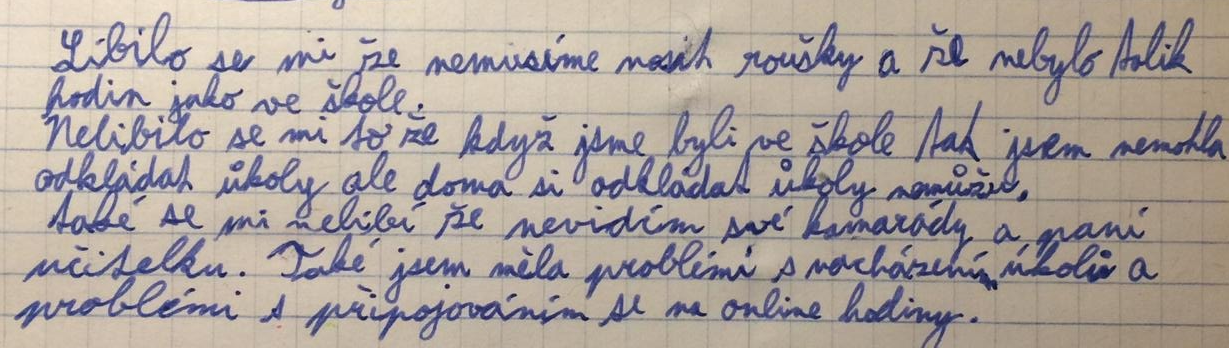 Líbilo se mi že nemusíme nosit roušky a že nebylo tolik
hodin jako ve škole.
Nelíbilo se mi to že když jsme byli ve škole tak jsem nemohla
odkládat úkoly ale doma si odkládat úkoly
také se mi nelíbí že nevidím své kamarády a paní
učitelku. Také jsem měla problémi s nacházením úkolů a
problémi s připojováním se na online hodiny.